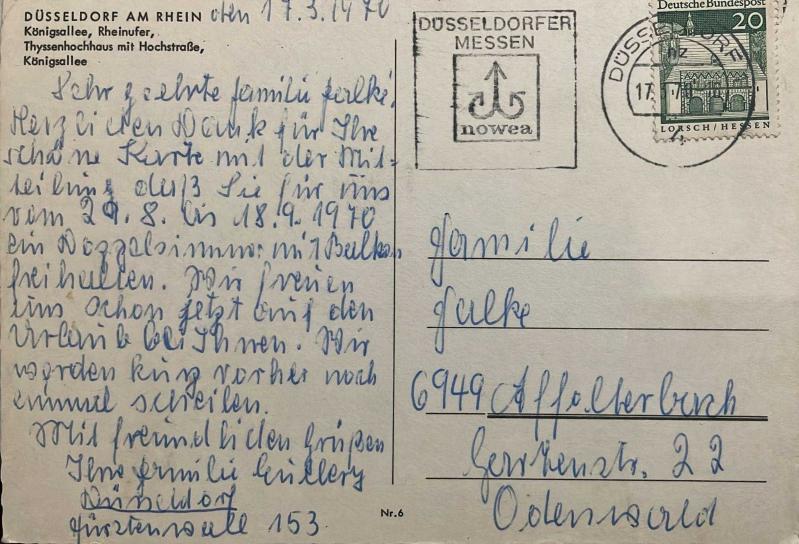 DÜSSELDORF AM RHEIN
Königsallee, Rheinufer,
Thyssenhochhaus mit Hochstraße,
Königsallee
den 17.3.1970
Sehr geehrte Familie Falke!
Herzlichen Dank für Ihre
schöne Karte mit der Mit-
teilung daß Sie für uns
vom 29.8. bis 18.9.1970
ein Doppelzimmer mit Balkon
freihalten. Wir freuen
uns schon jetzt auf den
Urlaub bei Ihnen. Wir
werden kurz vorher noch
einmal schreiben.
Mit freundlichen Grüßen
Ihre Familie
Düsseldorf
Fürstenwall 153
Nr. 6
DÜSSELDORFER
MESSEN
nowea
DÜSSELDORF
Deutsche Bundespost
20
LORSCH/HESSEN
Familie
Falke
6949 Affolterbach
22
Odenwald